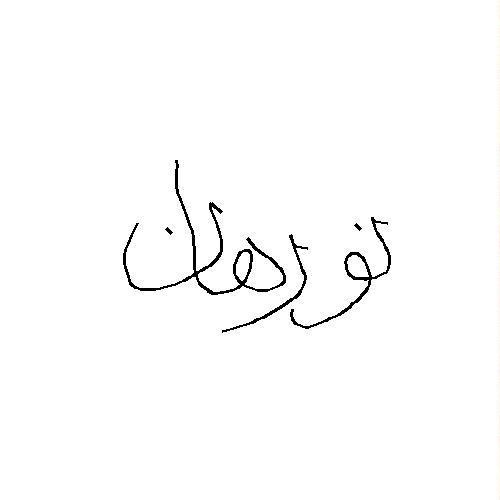 نورهان